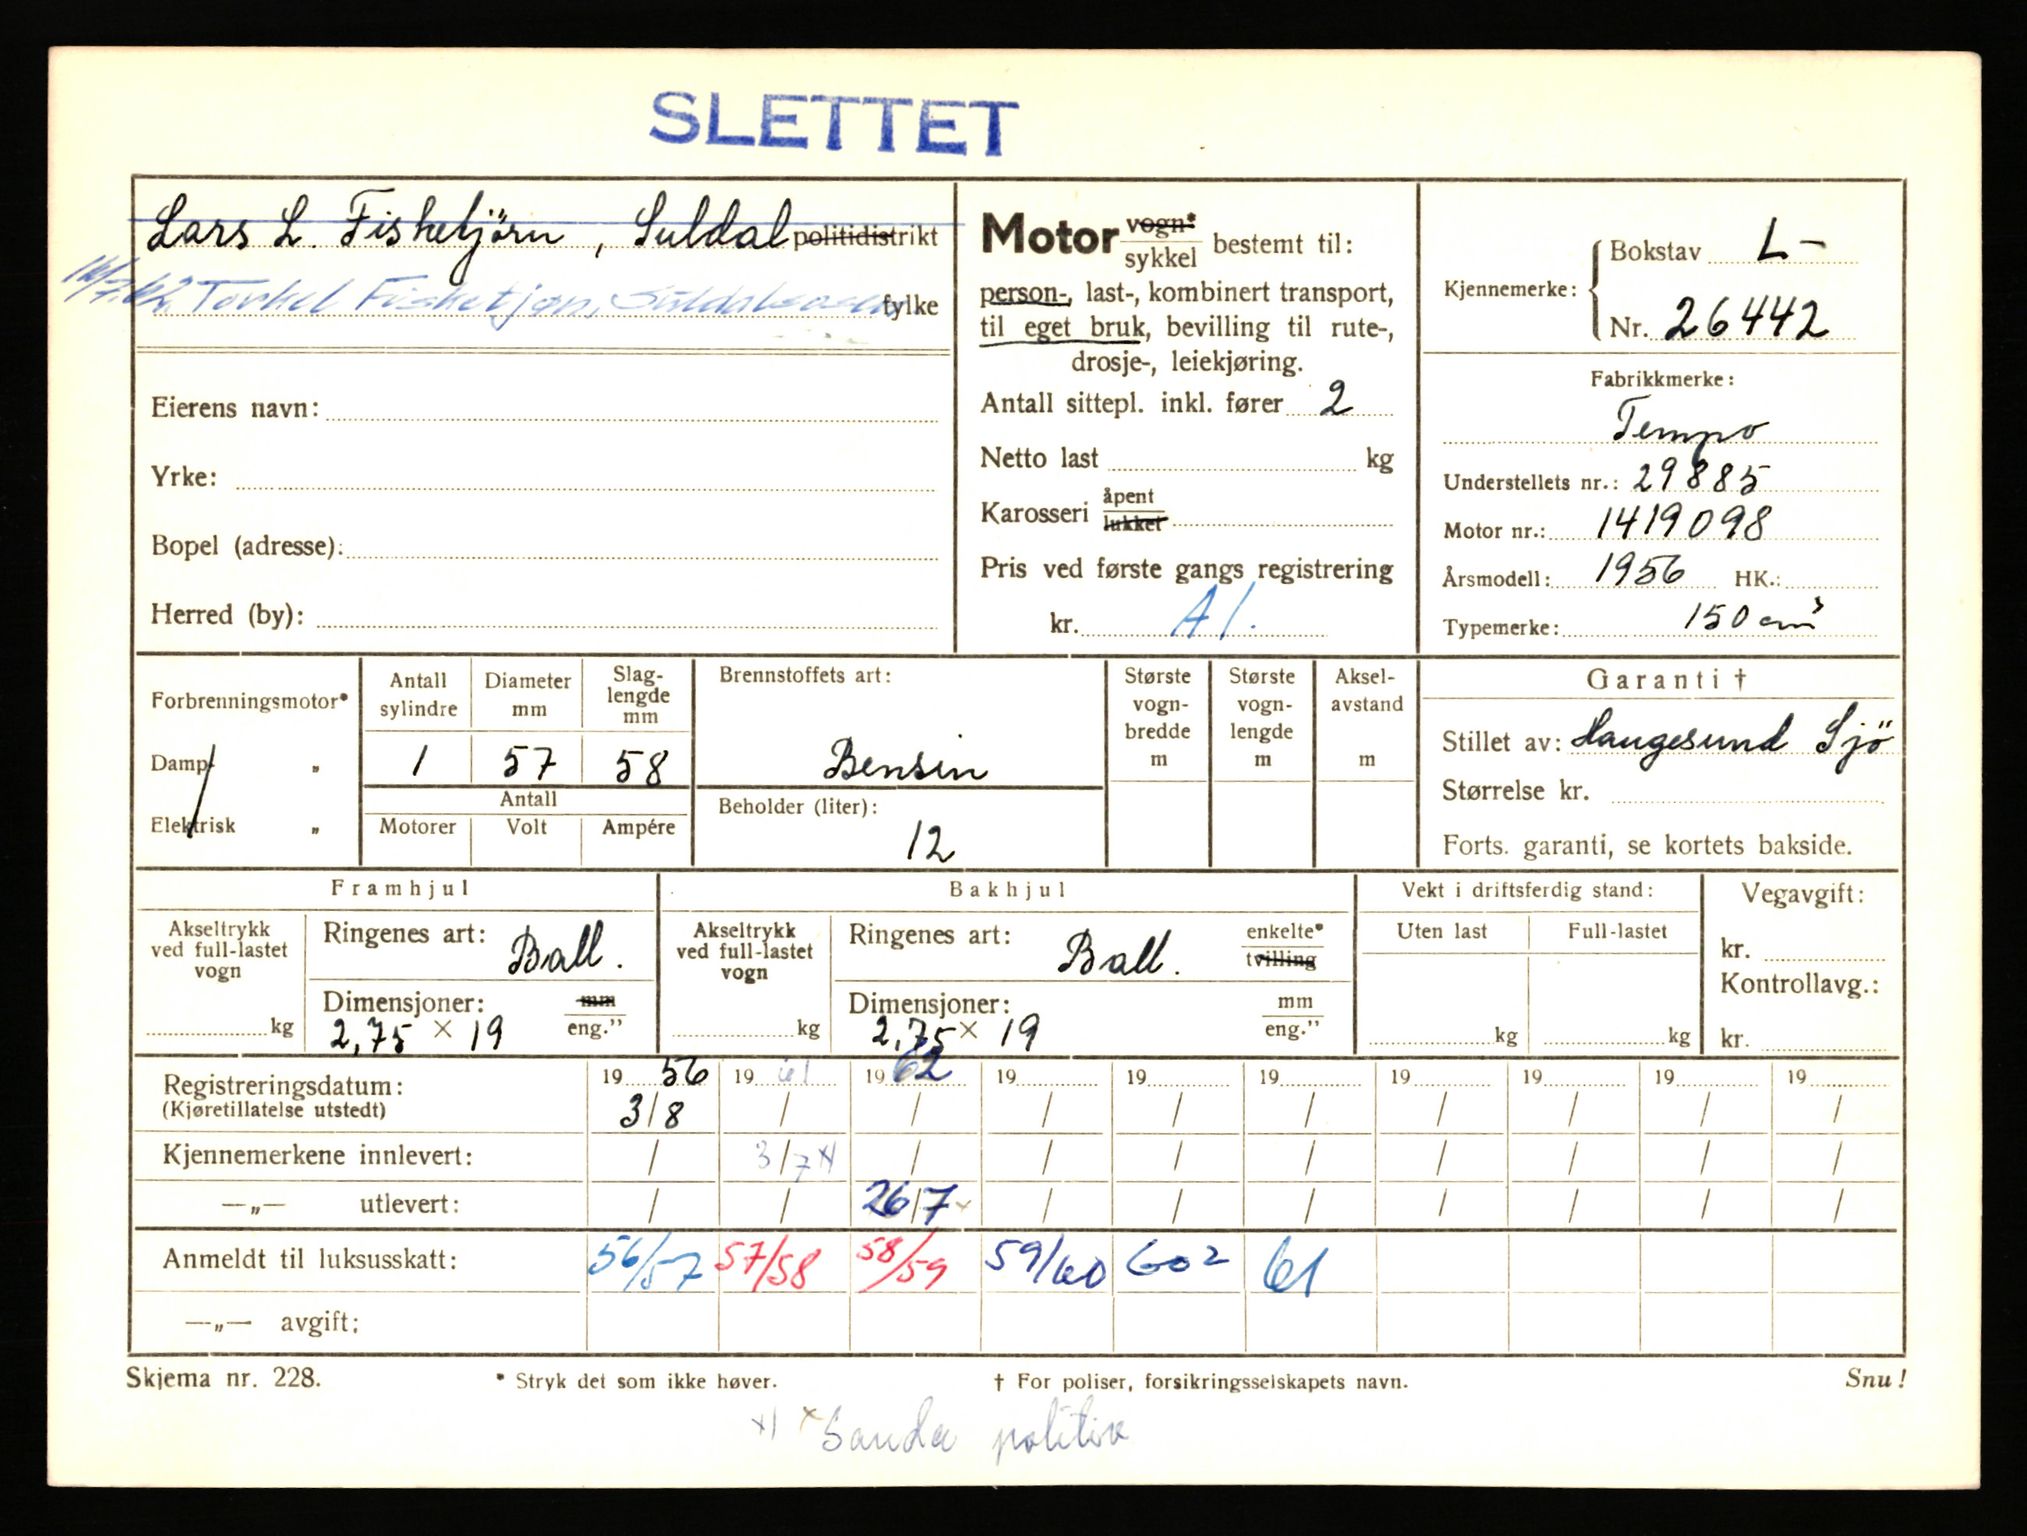 SLETTET
Lars L. Fisketjörn, Suldal politidistrikt
Torkel Fisketjøn, fylke
Eierens navn:
Yrke:
Bopel (adresse):
Herred (by):
Motor vogn* sykkel bestemt til:
person-, last-, kombinert transport,
til eget bruk, bevilling til rute-,
drosje-, leiekjøring.
Antall sittepl. inkl. fører 2
Netto last kg
Karosseri åpent lukket
Pris ved første gangs registrering
kr. A/.
Kjennemerke: Bokstav L-
Nr. 26442
Fabrikkmerke:
Tempo
Understellets nr.: 29885
Motor nr.: 1419098
Årsmodell: 1956 HK.:
Typemerke: 150 cm³
Forbrenningsmotor*
Damp- „
Elektrisk „
Antall sylindre
1
Diameter mm
57
Slag-lengde mm
58
Antall
Motorer Volt Ampére
Brennstoffets art:
Bensin
Beholder (liter):
12
Største vogn-bredde m
Største vogn-lengde m
Aksel-avstand m
Garanti †
Stillet av: Haugesund Sjö
Størrelse kr.
Forts. garanti, se kortets bakside.
Framhjul
Akseltrykk ved full-lastet vogn
kg
Ringenes art: Ball.
Dimensjoner: mm eng."
2,75 × 19
Bakhjul
Akseltrykk ved full-lastet vogn
kg
Ringenes art: Ball. enkelte* tvilling
Dimensjoner: mm eng."
2,75 × 19
Vekt i driftsferdig stand:
Uten last Full-lastet
kg kg
Vegavgift:
kr.
Kontrollavg.:
kr.
Registreringsdatum: 19 56 19 61 19 62 19 19 19 19 19 19 19
(Kjøretillatelse utstedt) 3/8 / / / / / / / / /
Kjennemerkene innlevert: / 3/7 x) / / / / / / / /
—„— utlevert: / / 26/7 x / / / / / / /
Anmeldt til luksusskatt: 56/57 57/58 58/59 59/60 602 61
—„— avgift:
Skjema nr. 228.
* Stryk det som ikke høver.
† For poliser, forsikringsselskapets navn.
Snu!
x) x Sauda politik